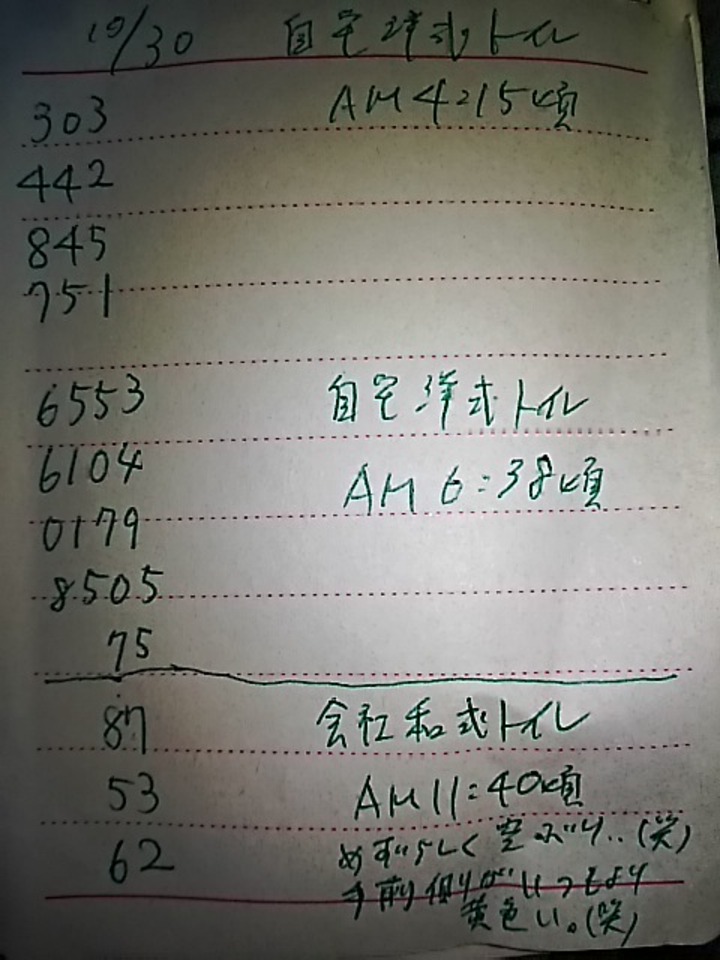 10/30 自宅洋式トイレ
303 AM4:15頃
442
845
751
6553 自宅洋式トイレ
6104 AM6:38頃
0179
8505
75
87 会社和式トイレ
53 AM11:40頃
62 めずらしく空ぶり..(笑)
手前側がいつもより
黄色い。(笑)